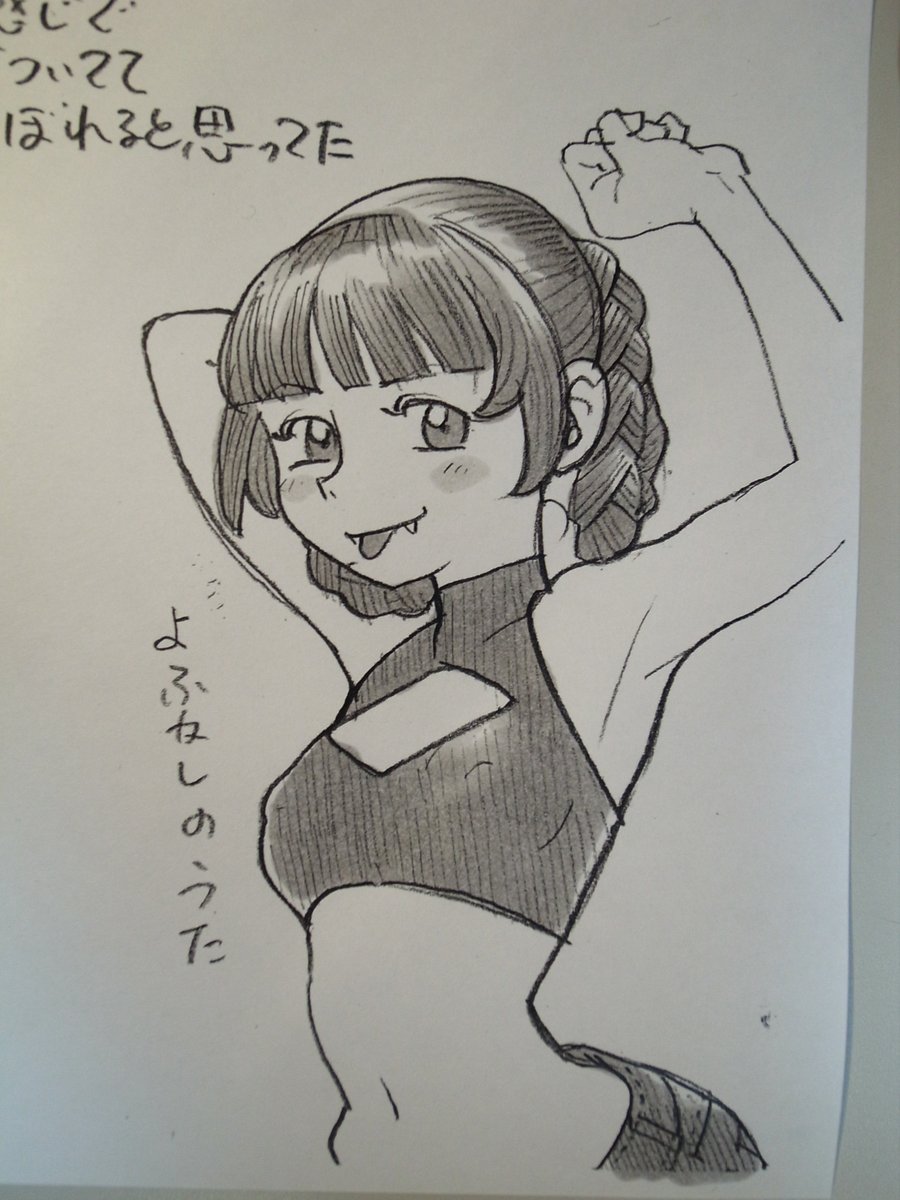 感じで
ついてて
ぼれると思ってた
よふねしのうた